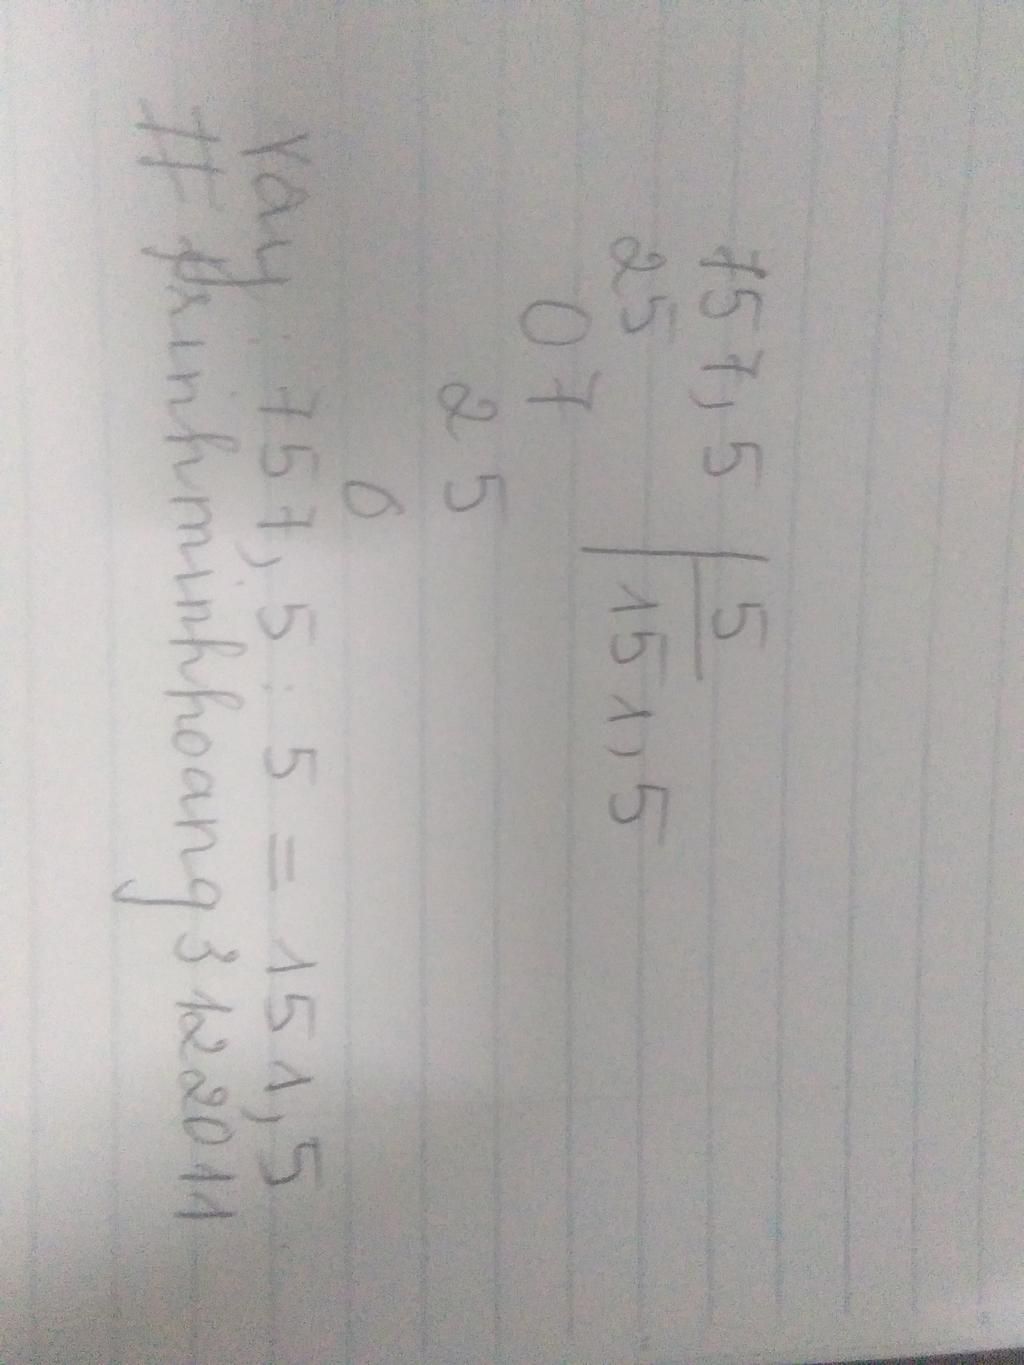 757,5 5
25 151,5
07
25
0
Vậy : 757,5 : 5 = 151,5
#trinhminhhoang31122011